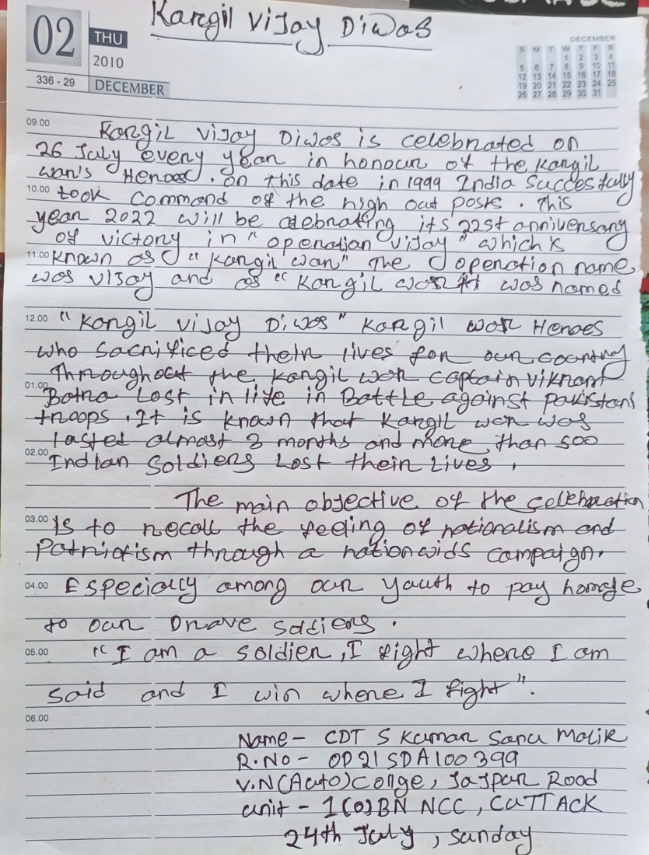 Kargil Vijay Diwas
02
THU
2010
336 - 29
DECEMBER
DECEMBER
S M T W T F S
1 2 3 4
5 6 7 8 9 10 11
12 13 14 15 16 17 18
19 20 21 22 23 24 25
26 27 28 29 30 31
09.00
Kargil Vijay Diwas is celebrated on
26 July every year in honour of the Kargil
war's Heroes. on this date in 1999 India Succesfully
10.00 took command of the high out posts. This
year 2022 will be celebrating its 22st anniversary
of victory in "operation vijay" which is
11.00 Known as "Kargil war" The operation name
was vijay and as "Kargil war it was named
12.00 "Kargil vijay Diwas" Kargil war Heroes
who sacrificed their lives for our country
Throughout the Kargil war captain vikrant
01.00 Batra Lost in live in Battle against pakistani
troops. It is known that Kargil war was
lasted almost 3 months and more than 500
02.00 Indian Soldiers Lost their Lives.
The main objective of the celebration
03.00 is to recall the feeling of nationalism and
Patriotism through a nationwids campaign.
04.00 Especially among our youth to pay homage
to our brave soldiers.
05.00 "I am a soldier, I fight where I am
said and I win where I fight".
06.00
Name - CDT S Kumar Sanu Malik
R.No - OD21SDA100399
V.N(Auto)Colge, Jajpur Road
unit - 1(O)BN NCC, CUTTACK
24th July, Sunday